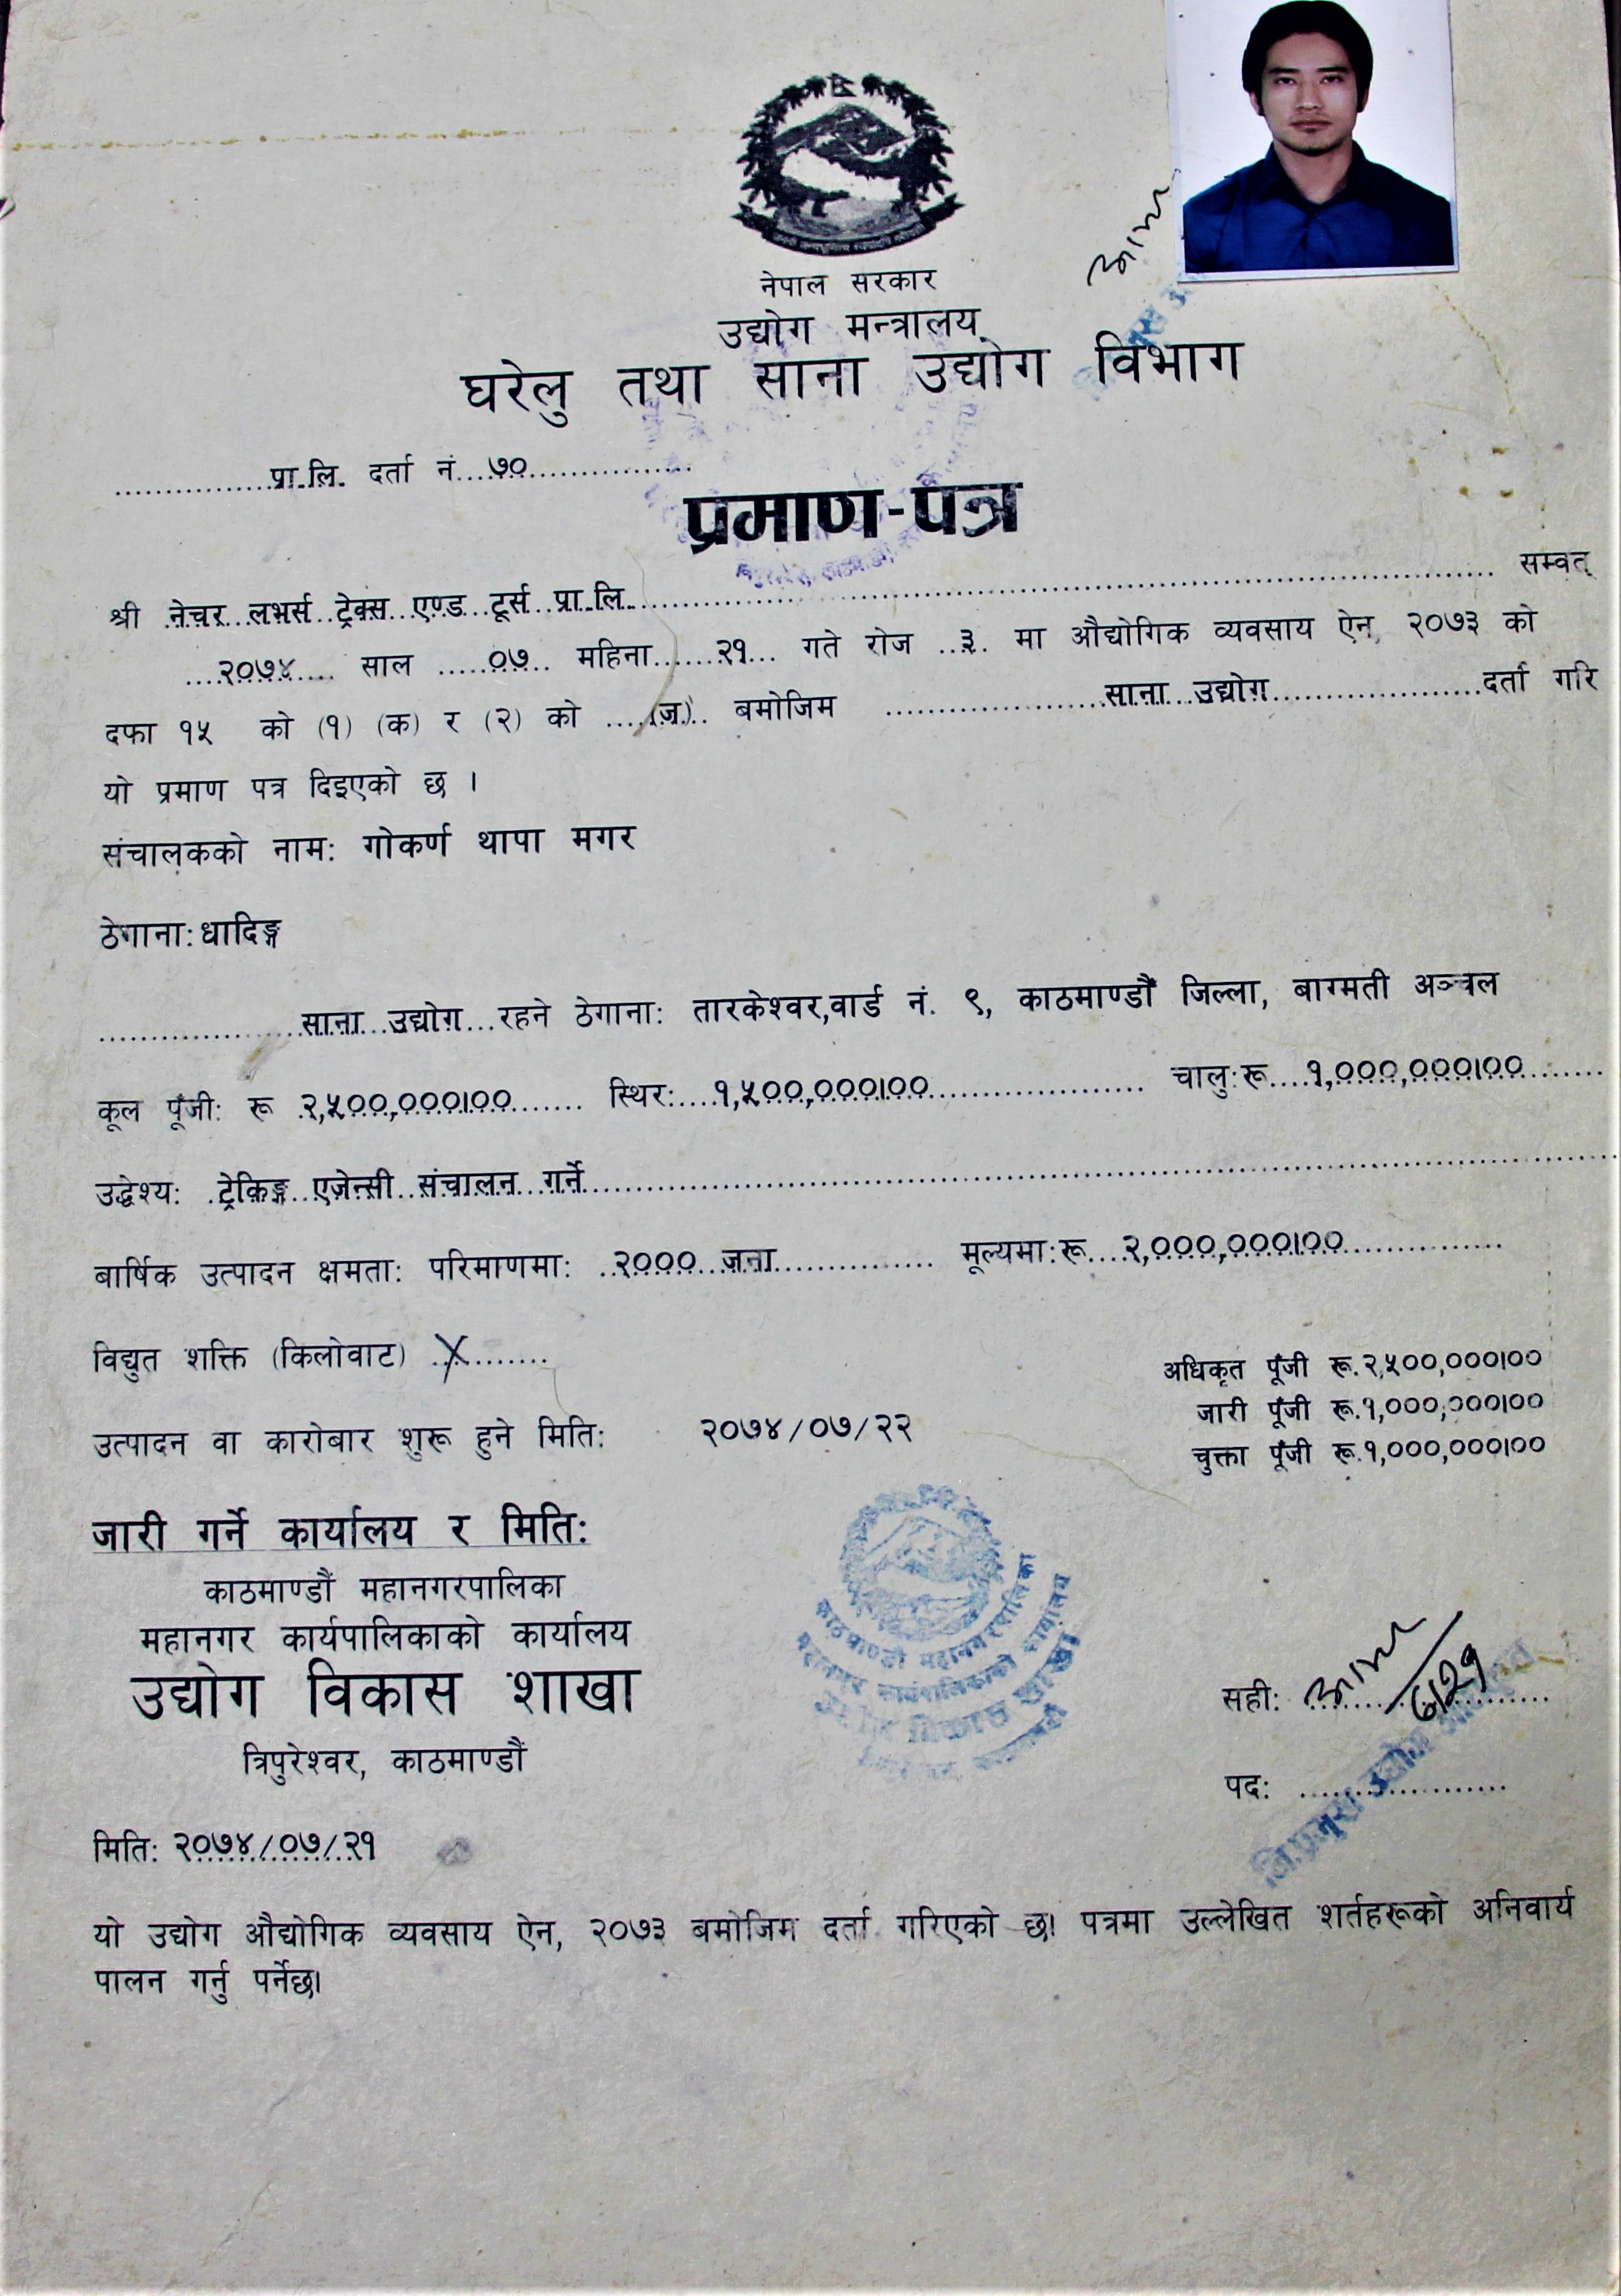 नेपाल सरकार
उद्योग मन्त्रालय
घरेलु तथा साना उद्योग विभाग
प्रा.लि. दर्ता नं. ७०
प्रमाण-पत्र
श्री नेचर लभर्स ट्रेक्स एण्ड टूर्स प्रा.लि. सम्वत्
२०७४ साल ०७ महिना २१ गते रोज ३ मा औद्योगिक व्यवसाय ऐन, २०७३ को
दफा १५ को (१) (क) र (२) को (ज) बमोजिम साना उद्योग दर्ता गरि
यो प्रमाण पत्र दिइएको छ ।
संचालकको नाम: गोकर्ण थापा मगर
ठेगाना: धादिङ्ग
साना उद्योग रहने ठेगाना: तारकेश्वर,वार्ड नं. ९, काठमाण्डौं जिल्ला, बाग्मती अञ्चल
कूल पूँजी: रू २,५००,०००।०० स्थिर: १,५००,०००।०० चालु: रू १,०००,०००।००
उद्धेश्य: ट्रेकिङ्ग एजेन्सी संचालन गर्ने
बार्षिक उत्पादन क्षमता: परिमाणमा: २००० जना मूल्यमा: रू २,०००,०००।००
विद्युत शक्ति (किलोवाट) X
अधिकृत पूँजी रू.२,५००,०००।००
जारी पूँजी रू.१,०००,०००।००
उत्पादन वा कारोबार शुरू हुने मिति: २०७४/०७/२२
चुक्ता पूँजी रू.१,०००,०००।००
जारी गर्ने कार्यालय र मिति:
काठमाण्डौं महानगरपालिका
महानगर कार्यपालिकाको कार्यालय
उद्योग विकास शाखा
त्रिपुरेश्वर, काठमाण्डौं
काठमाण्डौ महानगरपालिका
महानगर कार्यपालिकाको कार्यालय
उद्योग विकास शाखा
सही:
पद:
मिति: २०७४/०७/२१
यो उद्योग औद्योगिक व्यवसाय ऐन, २०७३ बमोजिम दर्ता गरिएको छ। पत्रमा उल्लेखित शर्तहरूको अनिवार्य
पालन गर्नु पर्नेछ।